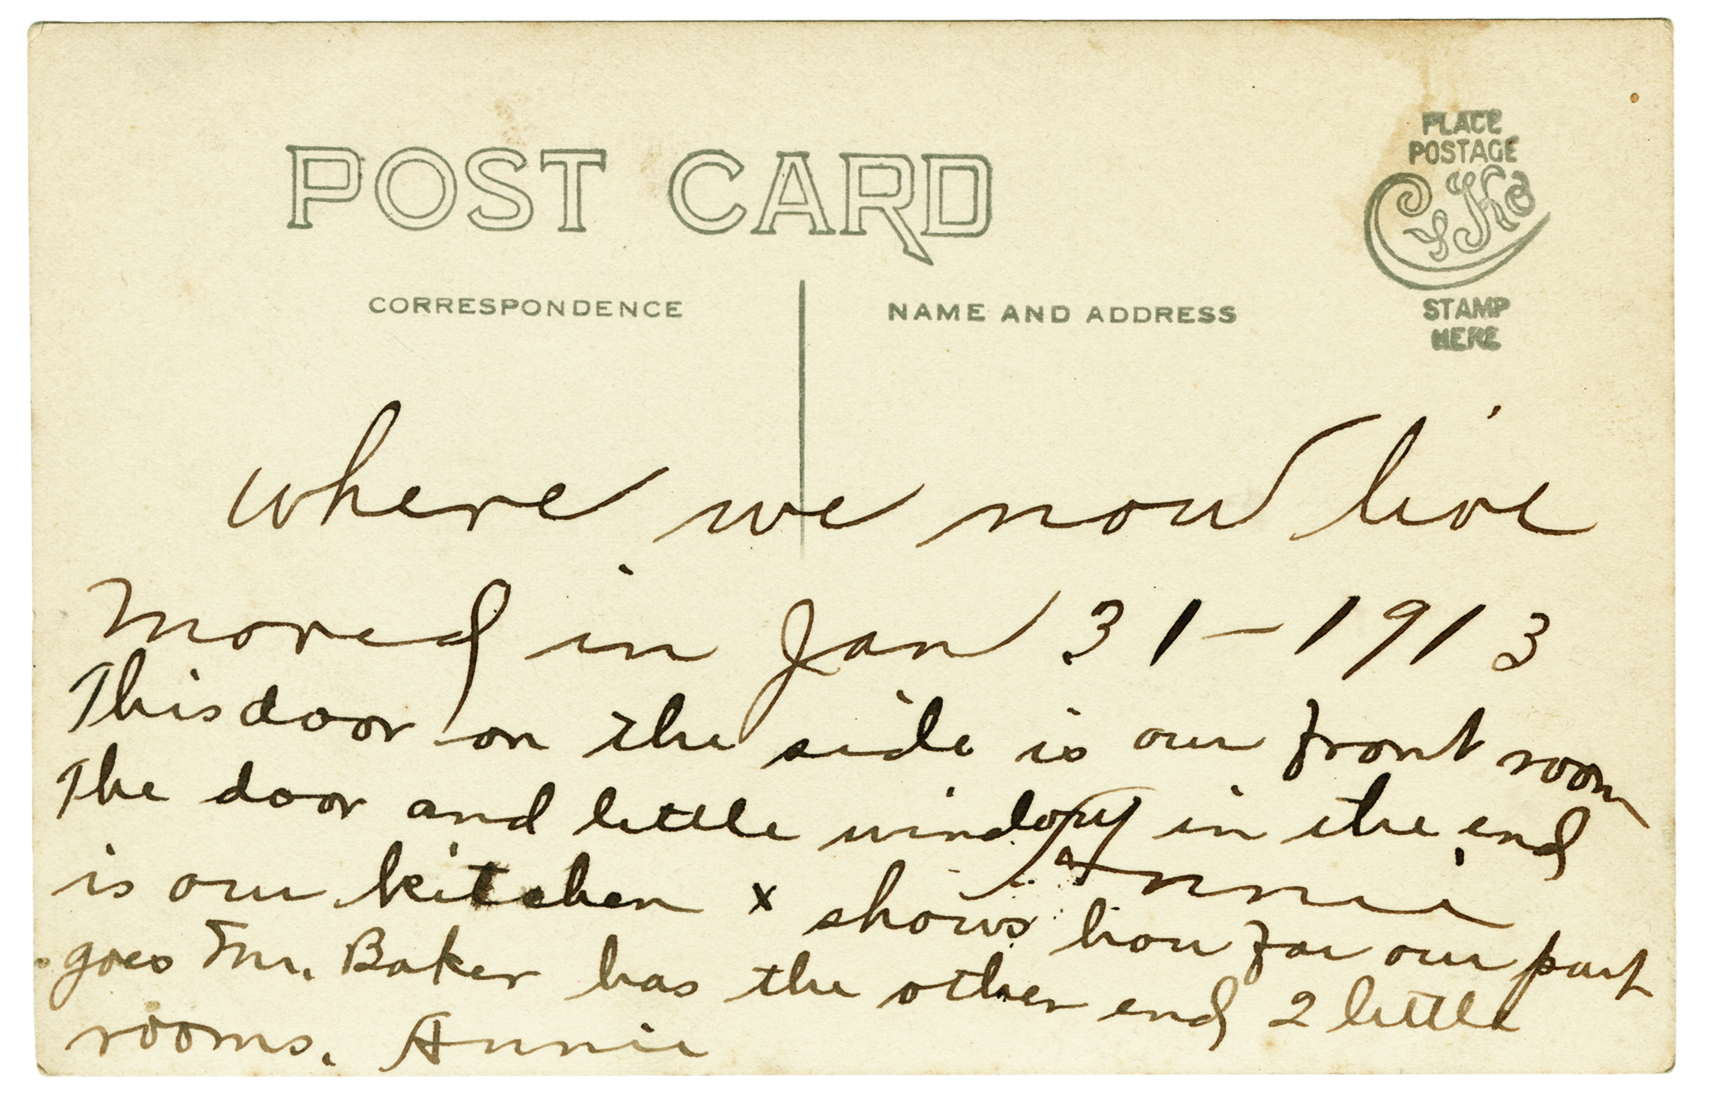 POST CARD
CORRESPONDENCE
NAME AND ADDRESS
PLACE
POSTAGE
CYKO
STAMP
HERE
where we now live
moved in Jan 31-1913
This door on the side is our front room
The door and little window in the end
Annie
is our kitchen x shows how far our part
goes Mr. Baker has the other end 2 little
rooms. Annie